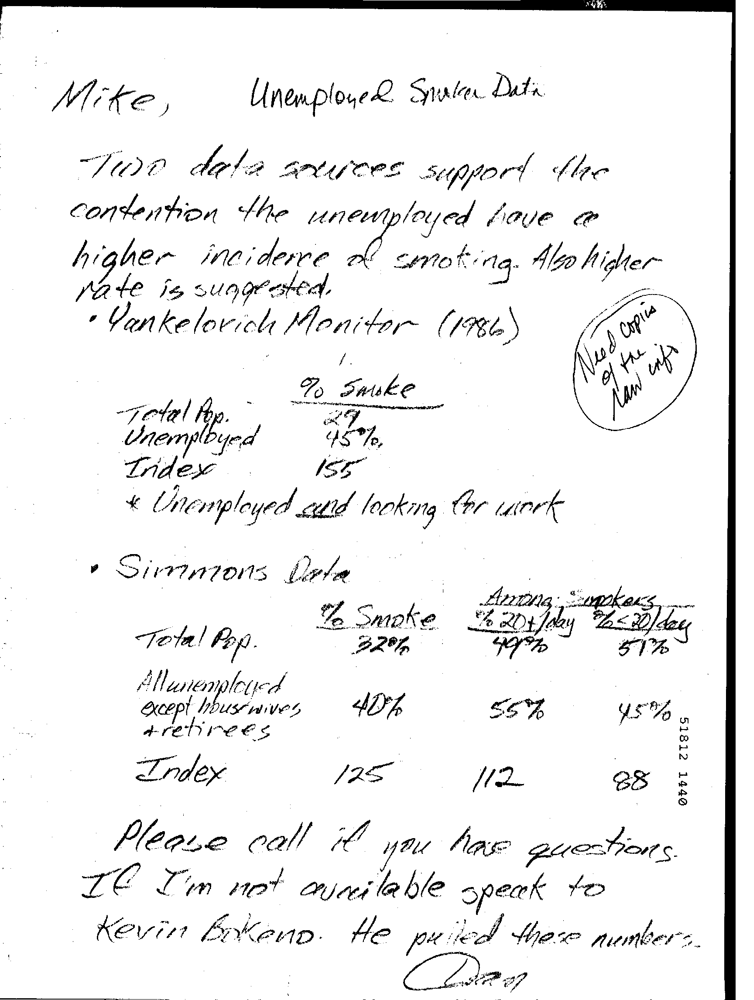 Mike,    Unemployed Smoker Data
Two data sources support the
contention the unemployed have a
higher incidence of smoking. Also higher
rate is suggested.
• Yankelovich Monitor (1986)
Need copies
of the
raw info
% Smoke
Total Pop.    29
Unemployed    45%
Index    155
* Unemployed and looking for work
• Simmons Data
Among Smokers
% Smoke    % 20+/day    % <20/day
Total Pop.    32%    49%    51%
All unemployed
except housewives    40%    55%    45%
+ retirees
Index    125    112    88
51812 1440
Please call if you have questions.
If I'm not available speak to
Kevin Bokeno. He pulled these numbers.